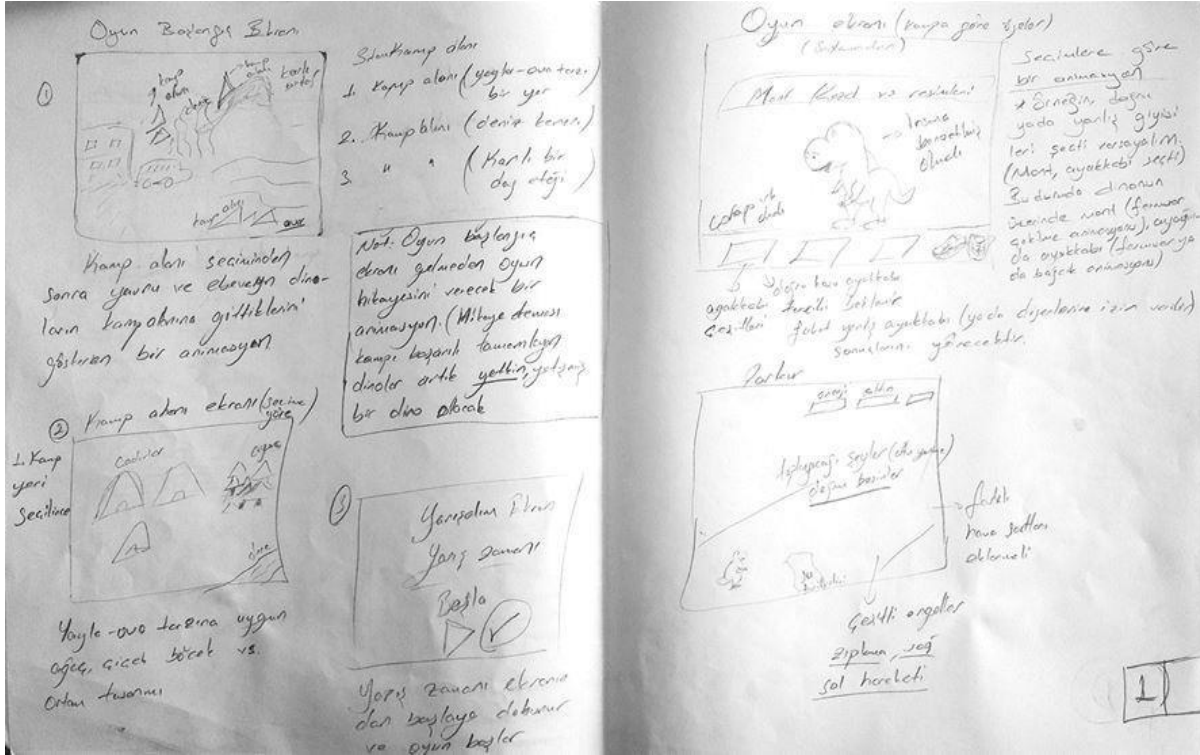 Oyun Başlangıç Ekranı
①
kamp alanı
kamp alanı
karlı
kamp alanı
ova
Kamp alanı seçiminden
sonra yavru ve ebeveyn dino-
ların kamp alanına gittiklerini
gösteren bir animasyon
② Kamp alanı ekranı (seçime göre)
1. Kamp
yeri
seçilince
Çadırlar
Yayla-ova tarzına uygun
ağaç, çiçek böcek vs.
ortam tasarımı
kamp alanı
1. Kamp alanı (yayla-ova tarzı
bir yer
2. Kamp alanı (deniz kenarı)
3. " " (Karlı bir
dağ eteği)
Not. Oyun başlangıç
ekranı gelmeden oyun
hikayesini verecek bir
animasyon. (Hikaye teması
kampı başarılı tamamlayan
dinolar artık yetkin, yetişmiş
bir dino olacak
③
Yarışalım Ekranı
Yarış zamanı
Başla
Yarış zamanı ekranın
dan başlaya dokunur
ve oyun başlar
Oyun ekranı (kampa göre öğeler)
Mont Kazak ve resimleri
İnsana
benzetilmiş
olmalı
ayakkabı
çeşitleri
fakat yanlış ayakkabı (yada diğerlerine izin verilir)
sonuçlarını görecektir.
Seçimlere göre
bir animasyon
* Örneğin, doğru
yada yanlış giysi
leri seçti varsayalım.
(Mont, ayakkabı seçti)
Bu durumda dinonun
üzerinde mont (fermuar
çekilme animasyonu), ayağın
da ayakkabı (fermuar ya
da bağcık animasyonu)
Parkur
enerji
toplayacağı şeyler
doğru besinler
farklı
hava şartları
eklenmeli
Çeşitli engeller
zıplama, sağ
sol hareketi
1